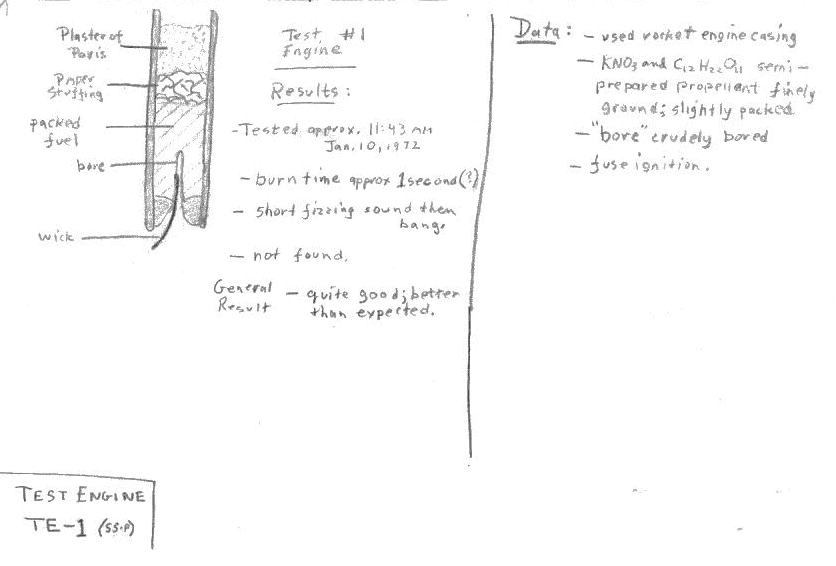 Plaster of
Paris
Paper
Stuffing
packed
fuel
bore
wick
Test #1
Engine
Results:
-Tested approx. 11:43 AM
Jan. 10, 1972
- burn time approx 1 second(?)
- short fizzing sound then
bang.
- not found.
General
Result
- quite good; better
than expected.
Data:
- used rocket engine casing
- KNO3 and C12H22O11 semi-
prepared propellant finely
ground; slightly packed
- "bore" crudely bored
- fuse ignition.
TEST ENGINE
TE-1 (SS-P)